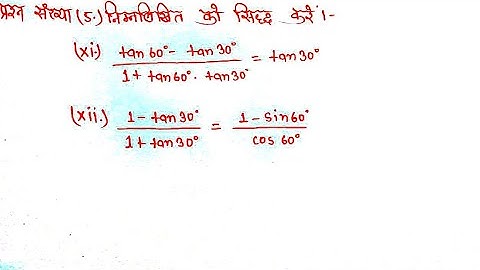 प्रश्न संख्या (5.) निम्नलिखित को सिद्ध करें।-
(xi.) (tan60° - tan30°)/(1 + tan60°. tan30°) = tan30°
(xii.) (1 - tan30°)/(1 + tan30°) = (1 - sin60°)/(cos 60°)